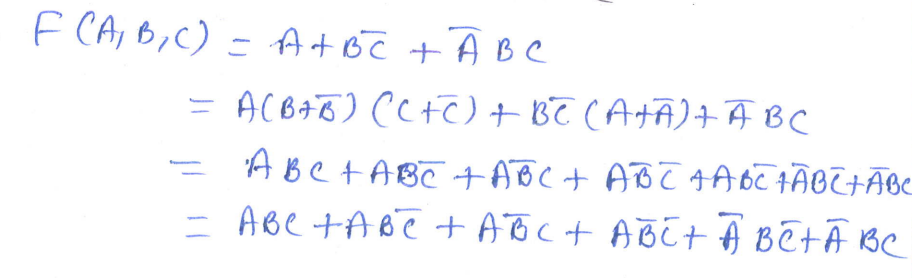 F(A, B, C) = A + BC̅ + A̅BC
= A(B+B̅)(C+C̅) + BC̅(A+A̅) + A̅BC
= ABC + ABC̅ + AB̅C + AB̅C̅ + ABC̅ + A̅BC̅ + A̅BC
= ABC + ABC̅ + AB̅C + AB̅C̅ + A̅BC̅ + A̅BC